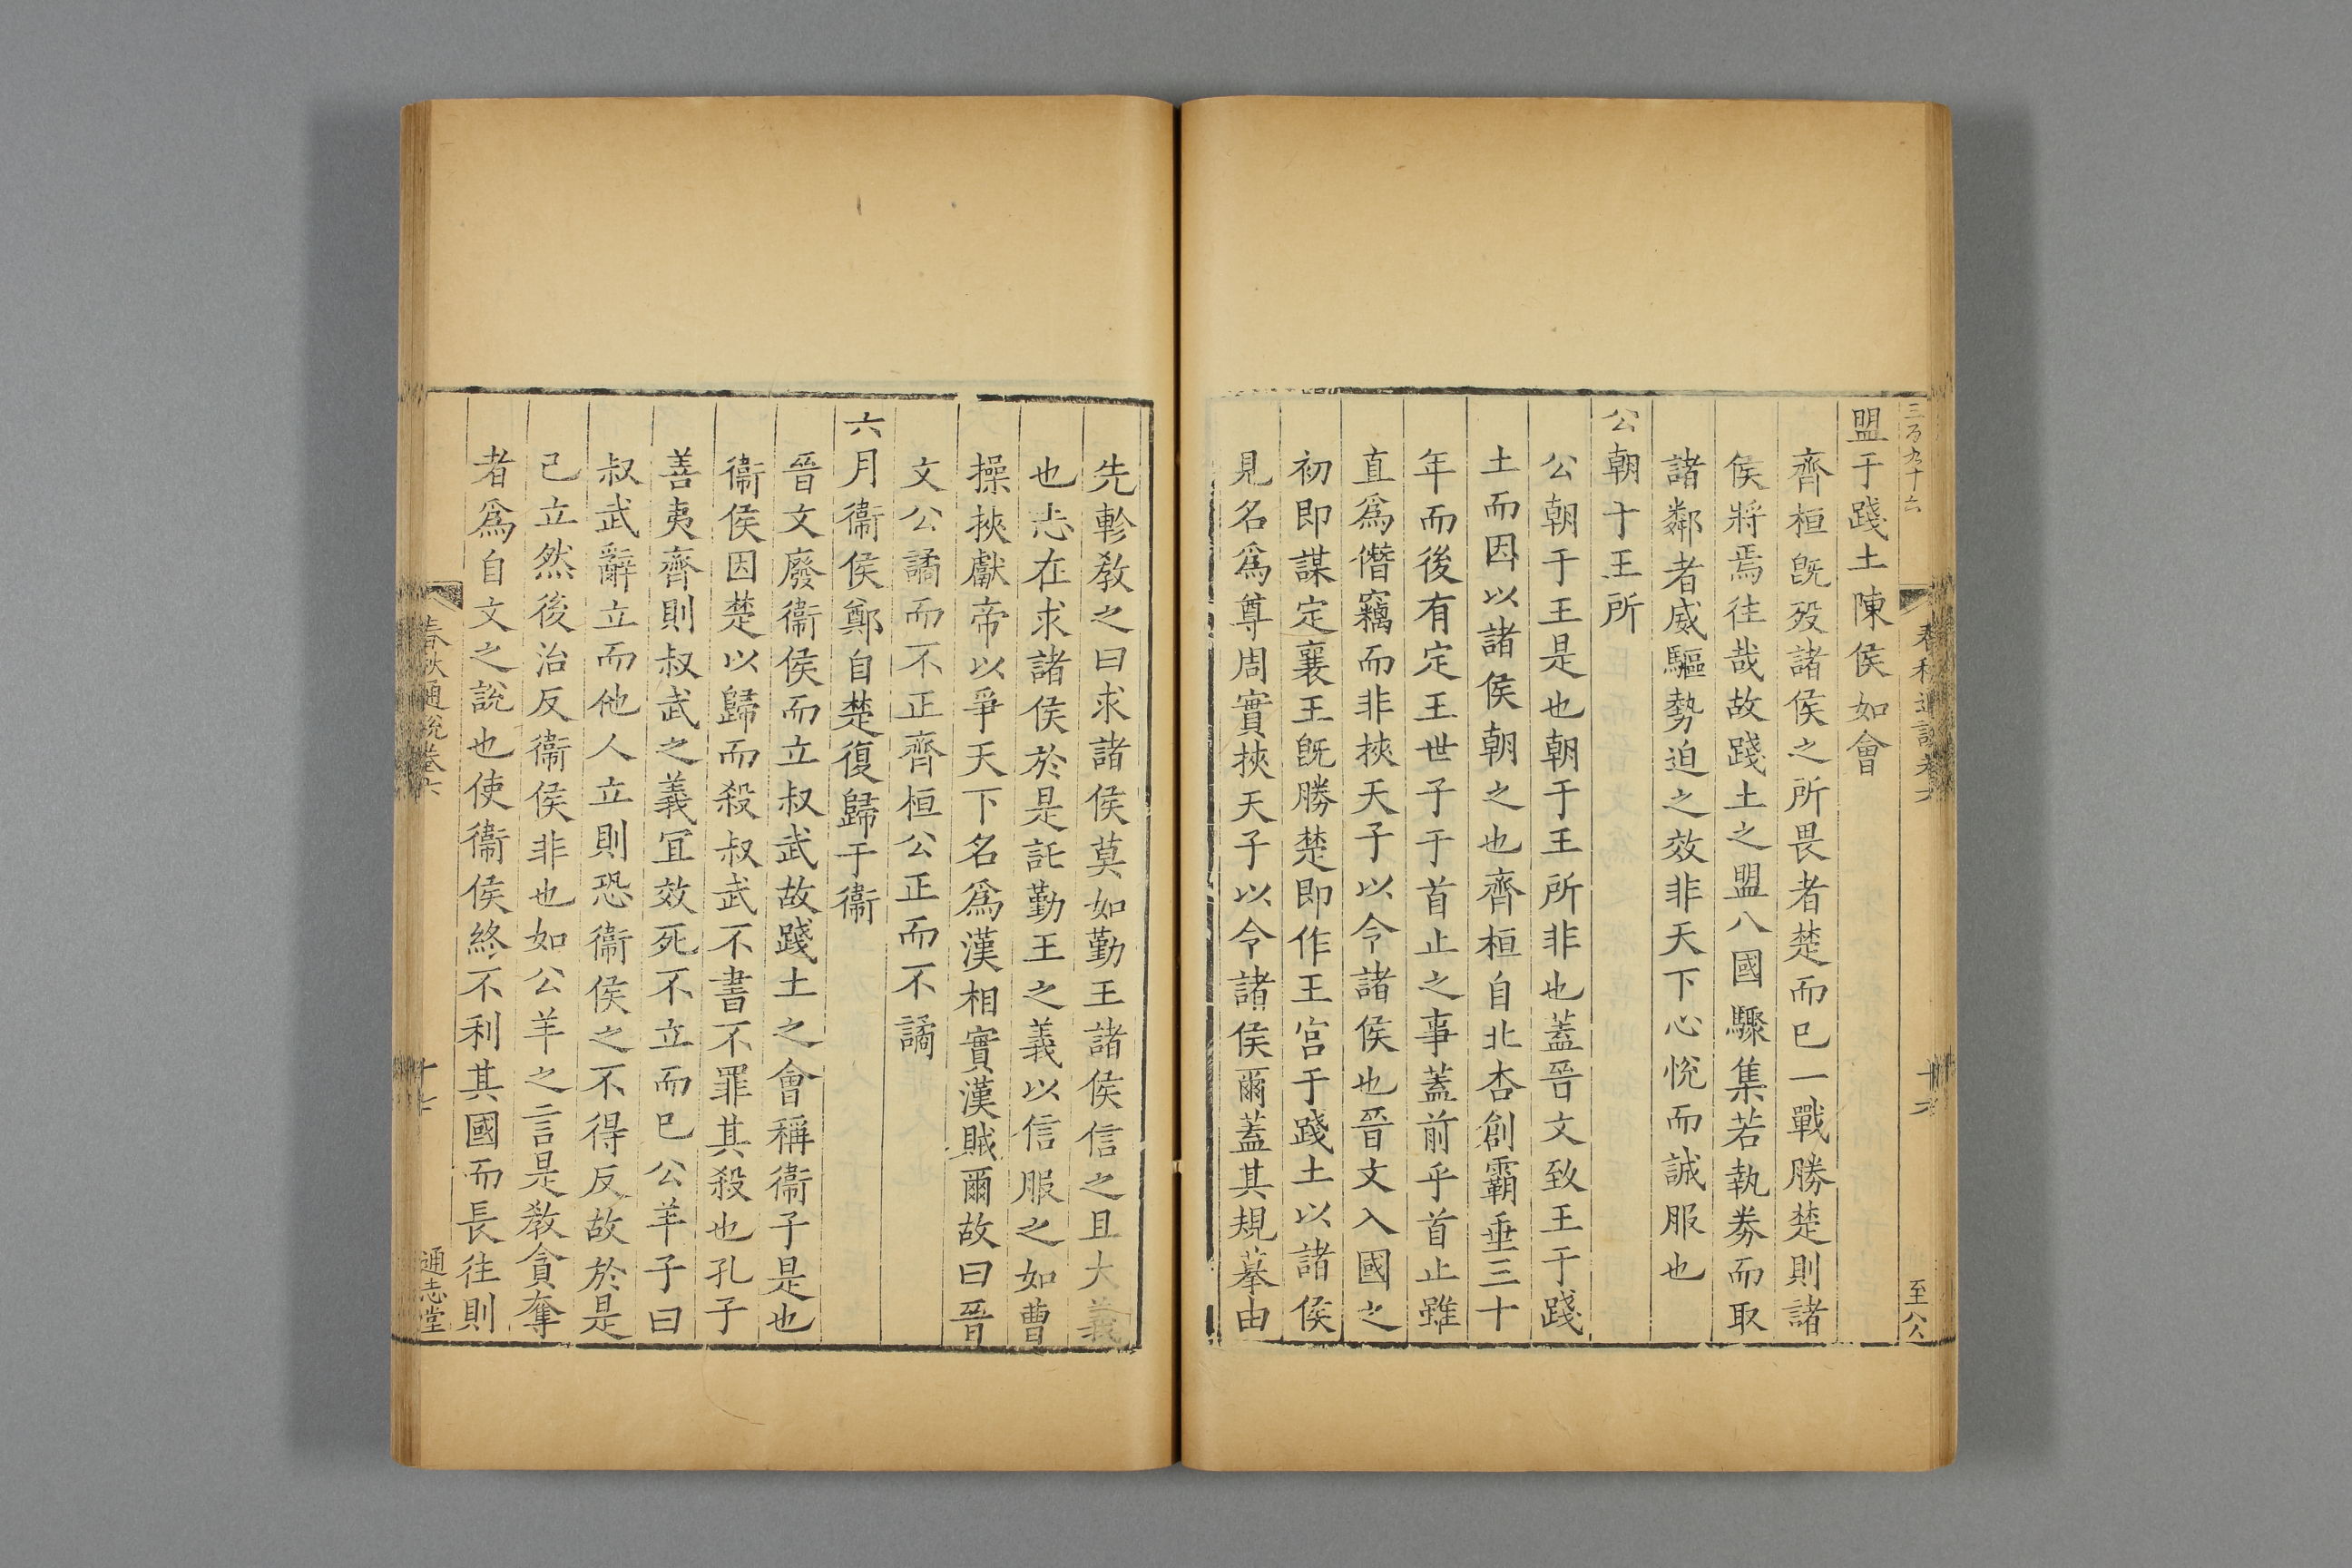 盟于踐土陳侯如會
齊桓旣歿諸侯之所畏者楚而已一戰勝楚則諸
侯將焉往哉故踐土之盟八國驟集若執劵而取
諸鄰者威驅勢迫之效非天下心悅而誠服也
公朝于王所
公朝于王是也朝于王所非也蓋晉文致王于踐
土而因以諸侯朝之也齊桓自北杏創霸垂三十
年而後有定王世子于首止之事蓋前乎首止雖
直爲僭竊而非挾天子以令諸侯也晉文入國之
初即謀定襄王旣勝楚即作王宮于踐土以諸侯
見名爲尊周實挾天子以令諸侯爾蓋其規摹由
先軫敎之曰求諸侯莫如勤王諸侯信之且大義
也志在求諸侯於是託勤王之義以信服之如曹
操挾獻帝以爭天下名爲漢相實漢賊爾故曰晉
文公譎而不正齊桓公正而不譎
六月衞侯鄭自楚復歸于衞
晉文廢衞侯而立叔武故踐土之會稱衞子是也
衞侯因楚以歸而殺叔武不書不罪其殺也孔子
善夷齊則叔武之義宜效死不立而已公羊子曰
叔武辭立而他人立則恐衞侯之不得反故於是
己立然後治反衞侯非也如公羊之言是敎貪奪
者爲自文之說也使衞侯終不利其國而長往則
春秋通說卷六
十七
通志堂